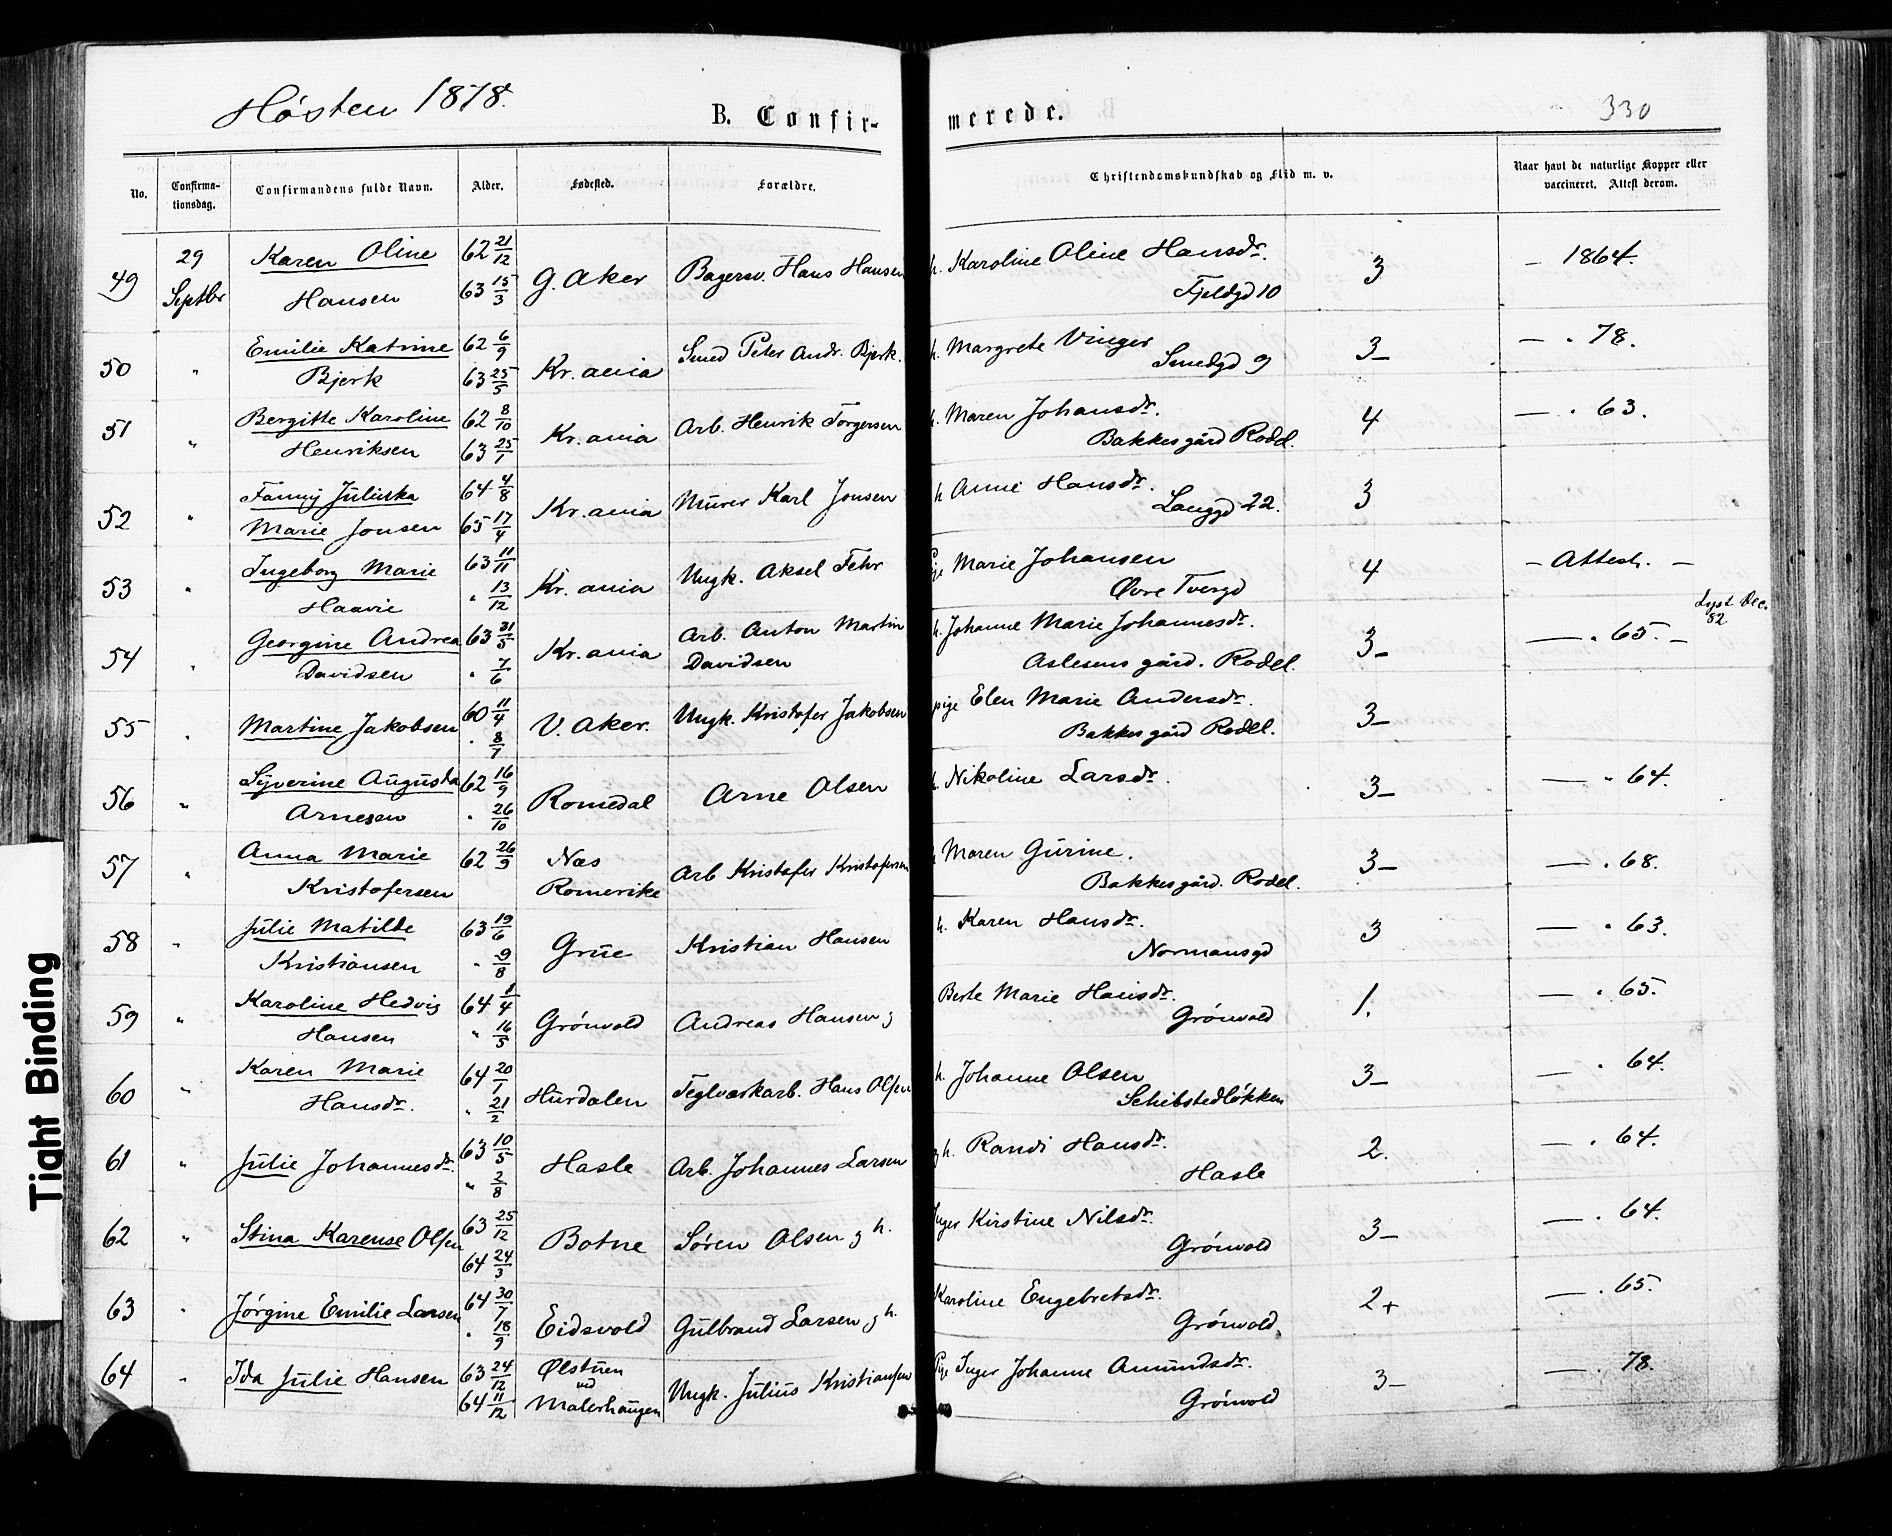 Høsten 1878.
B. Confirmerede.
330
No. Confirmationsdag. Confirmandens fulde Navn. Alder. Fødested. Forældre. Christendomskundskab og Flid m. v. Naar havt de naturlige Kopper eller vaccineret. Attest derom.
49 29 Septbr Karen Oline Hansen 62 21/12 63 15/3 G. Aker Bagersv. Hans Hansen h. Karoline Oline Hansdr. Fjeldgd 10 3 — 1864.
50 " Emilie Katrine Bjerk 62 6/9 63 25/5 Kr.ania Smed Peter Andr. Bjerk. h. Margrete Vinger Smedgd 9 3— — " 78.
51 " Bergitte Karoline Henriksen 62 8/10 63 25/1 Kr.ania Arb. Henrik Torgersen h. Maren Johansdr. Bakkesgård Rodel. 4 — " 63.
52 " Fanny Juliuska Marie Jonsen 64 4/8 65 17/4 Kr.ania Murer Karl Jonsen h Anne Hansdr. Langgd 22. 3
53 " Ingeborg Marie Haavie 63 11/11 " 13/12 Kr.ania Ungk. Aksel Fehr Pige Marie Johansen Øvre Tvergd 4 — Attest. —
54 " Georgine Andrea Davidsen 63 31/5 " 7/6 Kr.ania Arb. Anton Martin Davidsen h. Johanne Marie Johannesdr. Aslesens gård. Rodel. 3— — " 65. —
55 " Martine Jakobsen 60 11/4 " 8/7 V. Aker. Ungk. Kristofer Jakobsen pige Elen Marie Andersdr. Bakkesgård Rodel. 3—
56 " Syverine Augusta Arnesen 62 16/9 " 26/10 Romedal Arne Olsen h. Nikoline Larsdr. 3— — " 64.
57 " Anna Marie Kristofersen 62 26/9 Næs Romerike Arb Kristofer Kristofersen h Maren Gurine. Bakkesgård. Rodel. 3— — " 68.
58 " Julie Matilde Kristiansen 63 19/6 " 9/8 Grue Kristian Hansen h. Karen Hansdr. Normansgd 3 — " 63.
59 " Karoline Hedvig Hansen 64 1/4 " 16/5 Grønvold Andreas Hansen g Berte Marie Hansdr. Grønvold 1. — " 65.
60 " Karen Marie Hansdr. 64 20/1 " 21/2 Hurdalen Teglværkarb. Hans Olsen h. Johanne Olsen Schibstedløkken 3— — " 64.
61 " Julie Johannesdr. 63 10/5 " 2/8 Hasle Arb. Johannes Larsen g h. Randi Hansdr. Hasle 2. — " 64.
62 " Stina Karense Olsen 63 25/12 64 24/3 Botne Søren Olsen g h. Inger Kirstine Nilsdr. Grønvold 3— — " 64.
63 " Jørgine Emilie Larsen 64 30/7 " 18/9 Eidsvold Gulbrand Larsen g h. Karoline Engebretsdr. Grønvold. 2+ — " 65.
64 " Ida Julie Hansen 63 24/12 64 11/12 Ølstuen ved Malerhaugen Ungk. Julius Kristiansen Pige Inger Johanne Amundsdr. Grønvold 3— — " 78.
Tight Binding